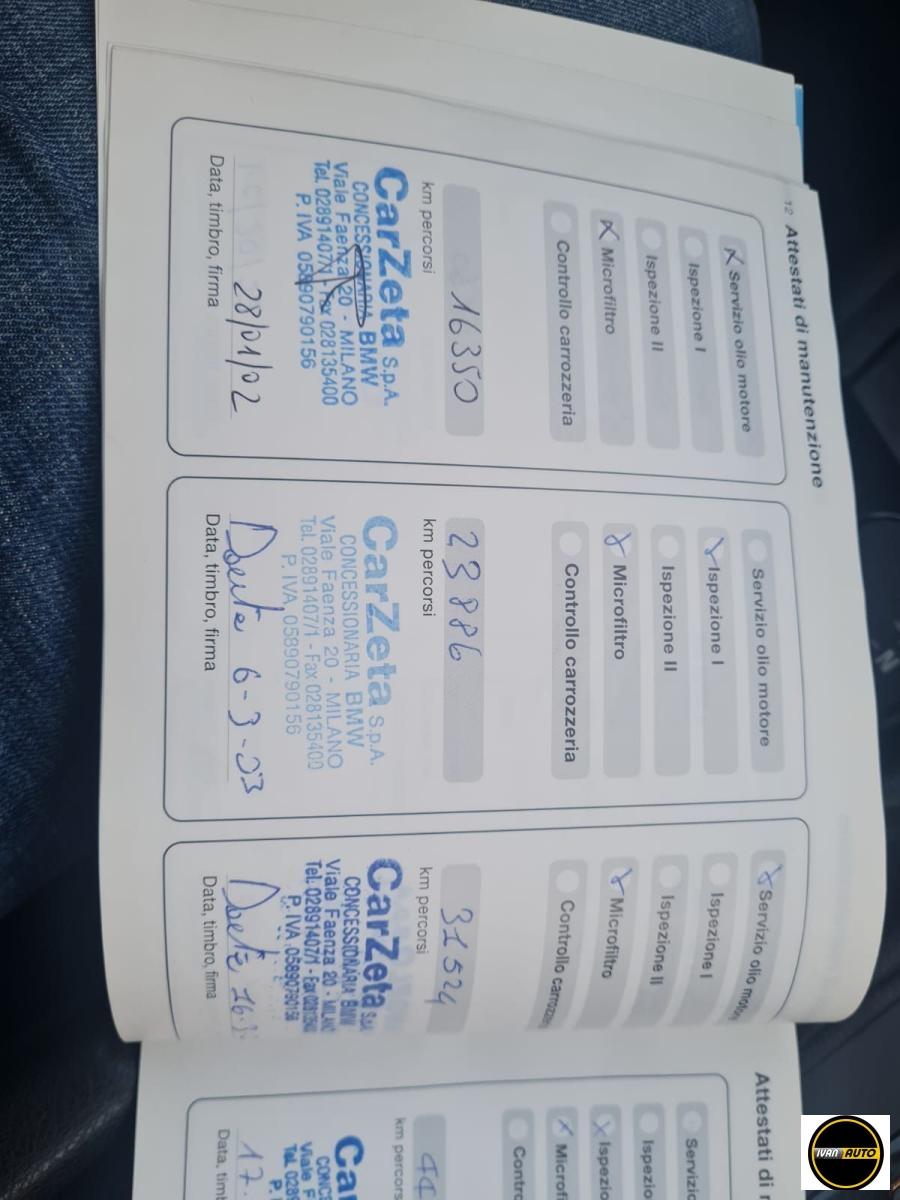 12 Attestati di manutenzione
Servizio olio motore
Ispezione I
Ispezione II
Microfiltro
Controllo carrozzeria
16350
km percorsi
CarZeta S.p.A.
CONCESSIONARIA BMW
Viale Faenza 20 - MILANO
Tel. 02891407/1 - Fax 028135400
P. IVA 05890790156
28/01/02
Data, timbro, firma
Servizio olio motore
Ispezione I
Ispezione II
Microfiltro
Controllo carrozzeria
23886
km percorsi
CarZeta S.p.A.
CONCESSIONARIA BMW
Viale Faenza 20 - MILANO
Tel. 02891407/1 - Fax 028135400
P. IVA 05890790156
6-3-03
Data, timbro, firma
Servizio olio motore
Ispezione I
Ispezione II
Microfiltro
Controllo carrozzeria
31524
km percorsi
CarZeta
CONCESSIONARIA BMW
Viale Faenza 20 - MILANO
Tel. 02891407/1 - Fax
P. IVA 05890790156
Data, timbro, firma
Attestati di
Servizio
Ispezio
Ispezio
Microfi
Contro
km percors
Viale F
Tel. 028
17.
Data, timb
IVAN AUTO